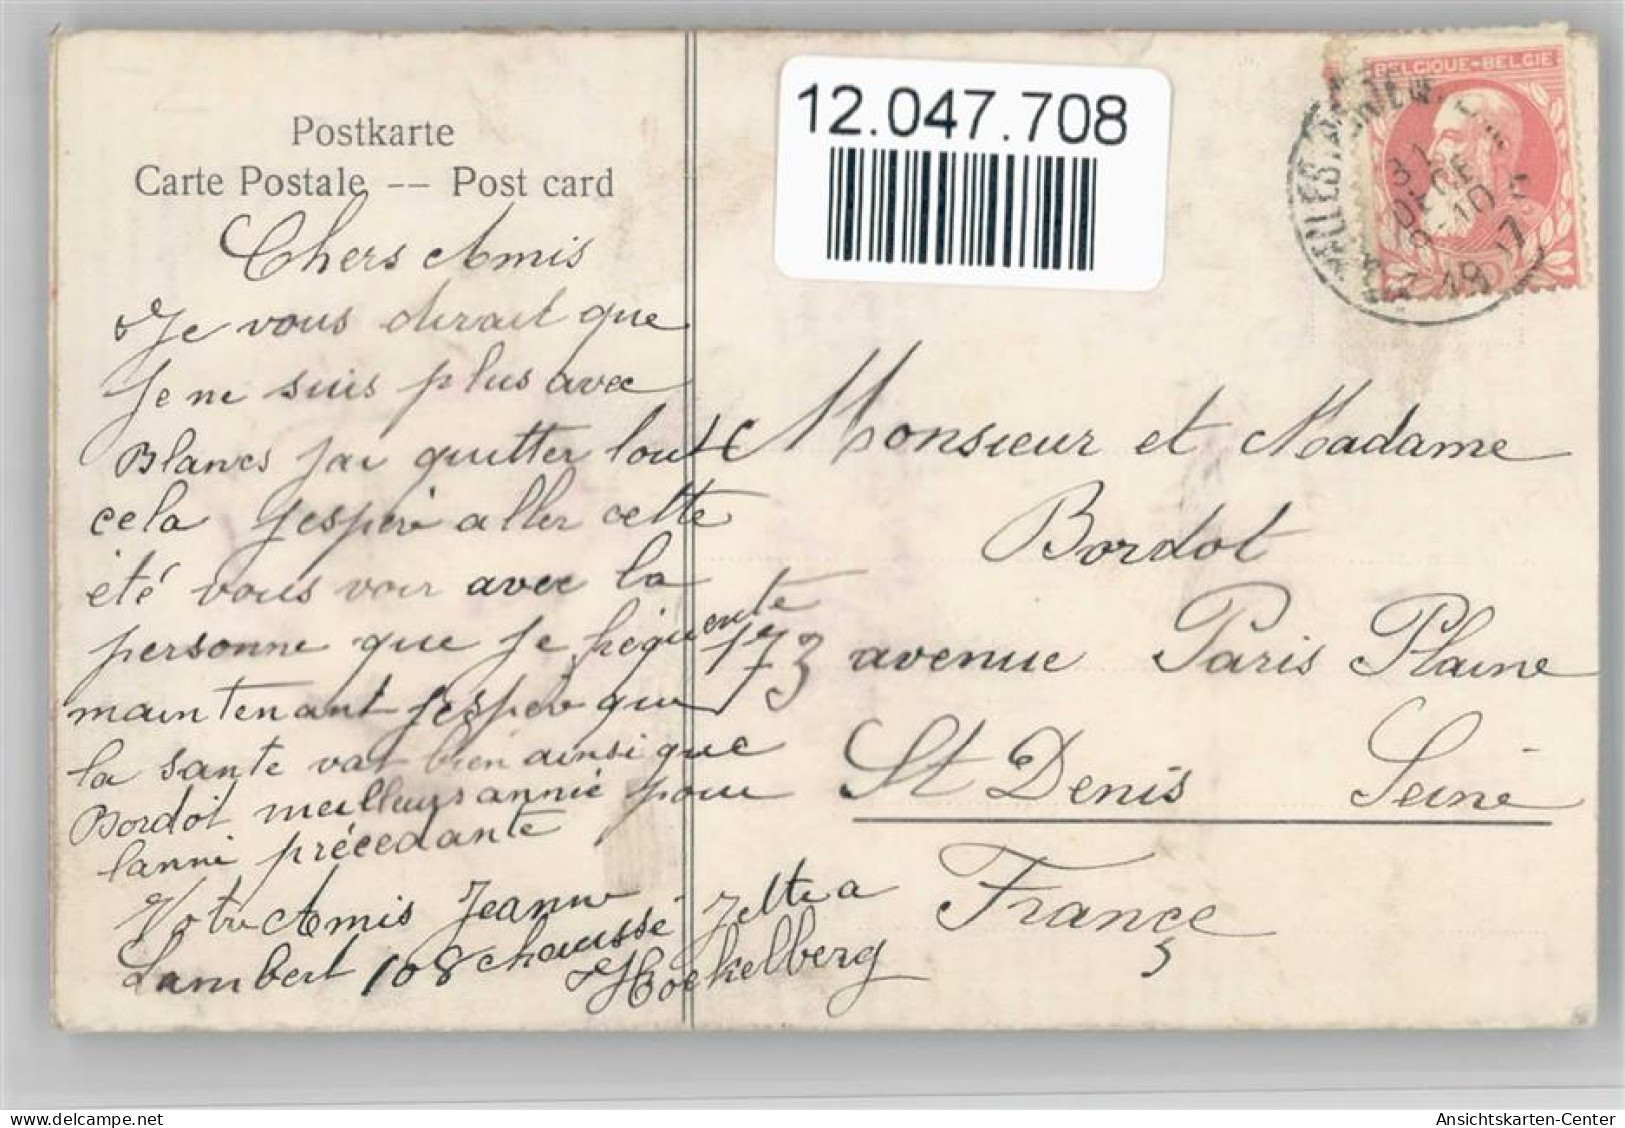 Postkarte
Carte Postale -- Post card
12.047.708
BELGIQUE-BELGIE
31
Chers Amis
Je vous dirait que
Je ne suis plus avec
Blanes jai quitter toute
cela Jespere aller cette
été vous voir avec la
personne que Je fréquente
maintenant Jespère que
la sante vat bien ainsi que
Bordot meilleurs année pour
lanné précedante
Votre Amis Jeanne
Lambert 108 chaussé Jette a
Hockelberg
Monsieur et Madame
Bordot
173 avenue Paris Plaine
St Denis Seine
France
www.oldthing.de
Ansichtskarten-Center